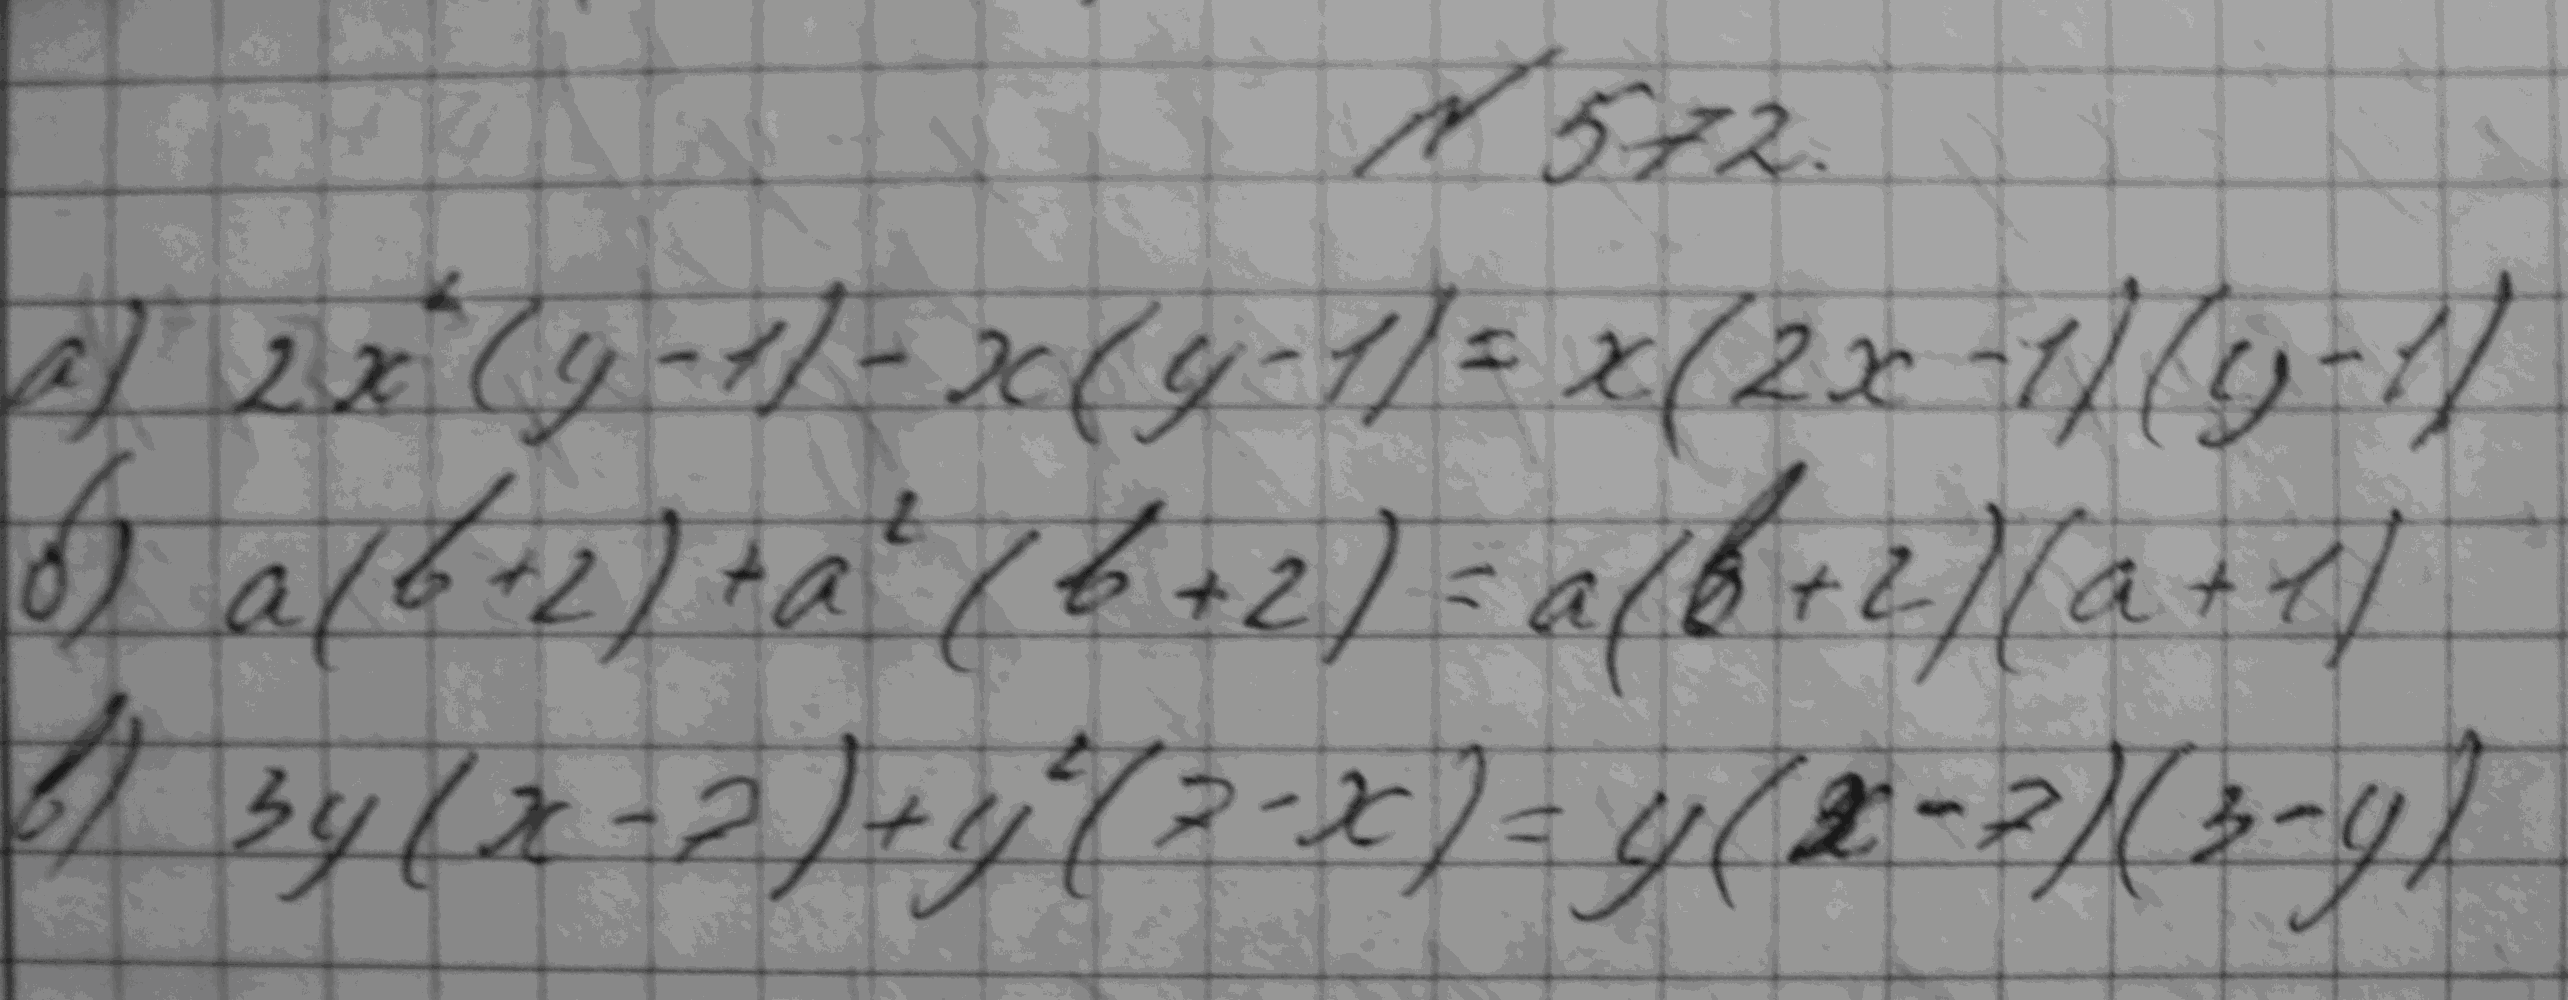 № 572.
а) 2x²(y-1)-x(y-1)=x(2x-1)(y-1)
б) a(b+2)+a²(b+2)=a(b+2)(a+1)
в) 3y(x-7)+y²(7-x)=y(x-7)(3-y)